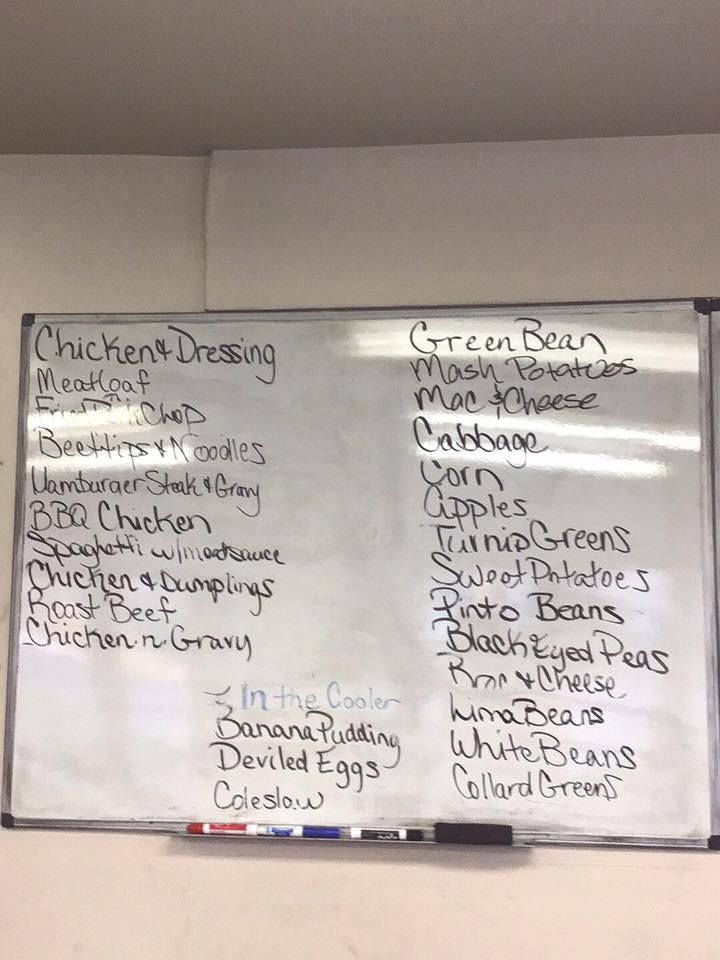 Chicken & Dressing
Meatloaf
Chop
Beef tips & Noodles
Hamburger Steak & Gravy
BBQ Chicken
Spaghetti w/meat sauce
Chicken & Dumplings
Roast Beef
Chicken n Gravy
Green Bean
Mash Potatoes
Mac & Cheese
Cabbage
Corn
Apples
Turnip Greens
Sweet Potatoes
Pinto Beans
Black Eyed Peas
& Cheese
Lima Beans
White Beans
Collard Greens
In the Cooler
Banana Pudding
Deviled Eggs
Coleslaw